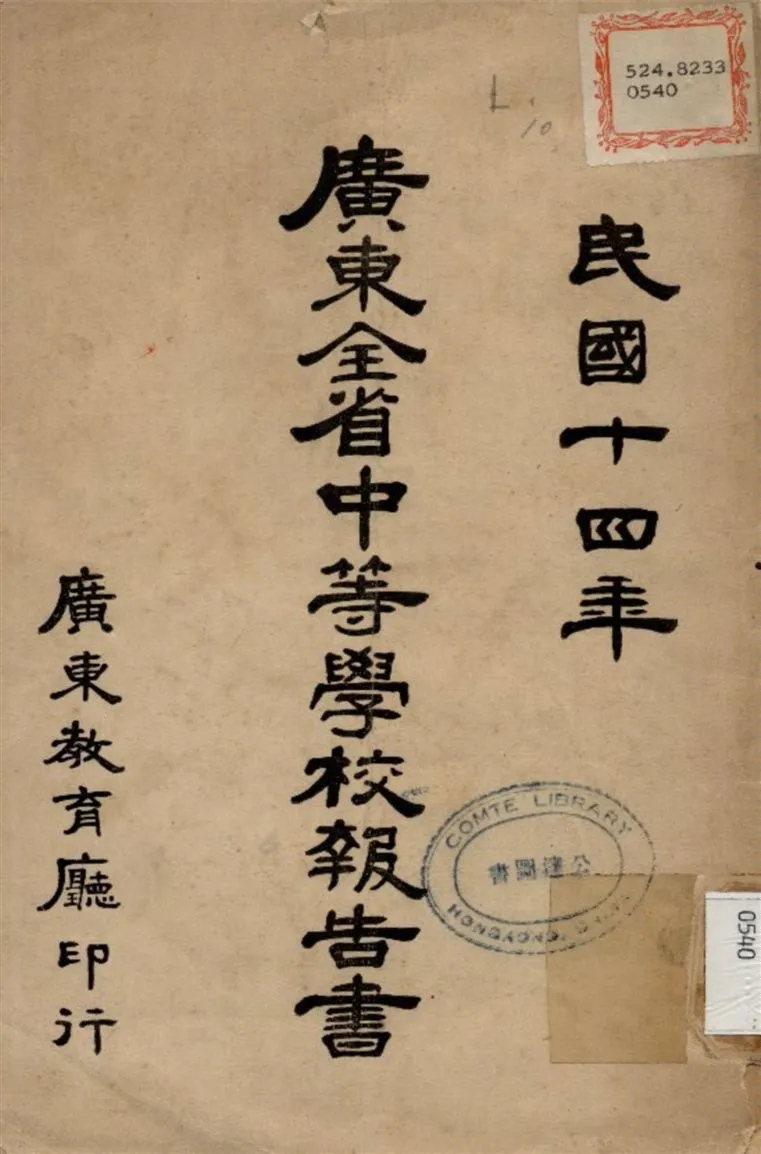 524.8233
0540
L
10
民國十四年
廣東全省中等學校報告書
廣東教育廳印行
COMTE LIBRARY
0540